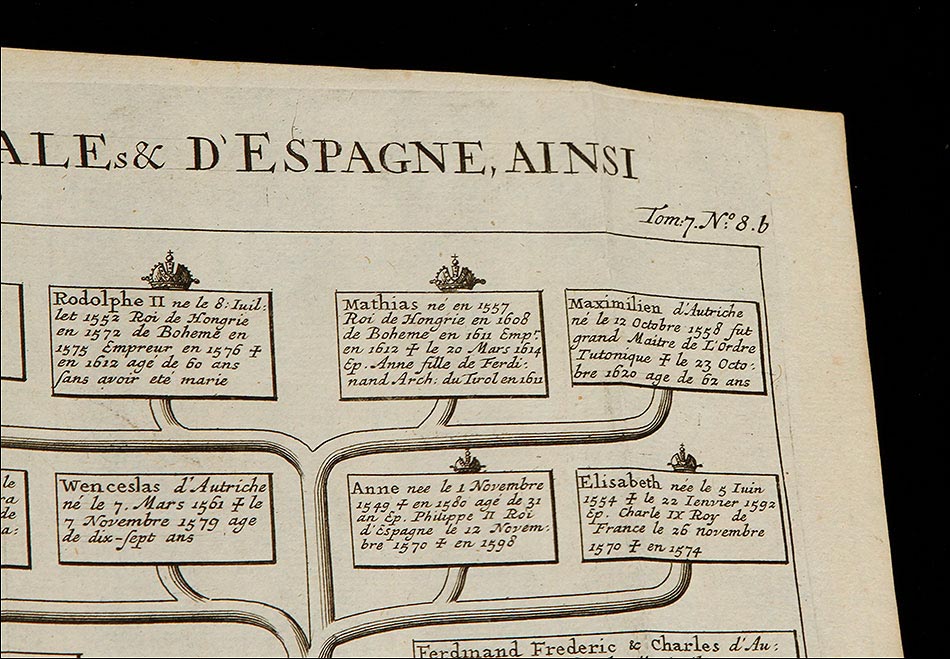 ALEs & D'ESPAGNE, AINSI
Tom: 7. N.º 8. b
Rodolphe II ne le 8: Iuil:
let 1552 Roi de Hongrie
en 1572 de Boheme en
1575 Empreur en 1576 ☩
en 1612 age de 60 ans
ſans avoir ete marie
Mathias né en 1557
Roi de Hongrie en 1608
de Boheme en 1611 Emp.r
en 1612 ☩ le 20 Mars 1614
Ep. Anne fille de Ferdi:
nand Arch. du Tirol en 1611
Maximilien d'Autriche
né le 12 Octobre 1558 fut
grand Maitre de L'Ordre
Tutonique ☩ le 23 Octo:
bre 1620 age de 62 ans
le
ra
de
a:
Wenceslas d'Autriche
né le 7. Mars 1561 ☩ le
7 Novembre 1579 age
de dix-ſept ans
Anne nee le 1 Novembre
1549 ☩ en 1580 agé de 31
an Ep. Philippe II Roi
d'Espagne le 12 Novem:
bre 1570 ☩ en 1598
Elisabeth née le 5 Iuin
1554 ☩ le 22 Ienvier 1592
Ep. Charle IX Roy de
France le 26 novembre
1570 ☩ en 1574
Ferdinand Frederic & Charles d'Au: